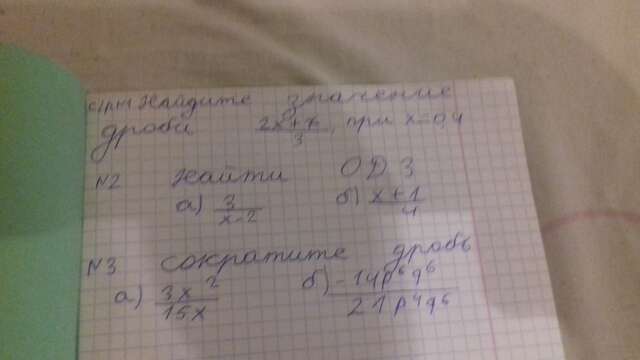 с/р№1 Найдите значение
дроби (2x+7)/3, при x=0,4
№2 Найти ОДЗ
а) 3/(x-2) б) (x+1)/4
№3 Сократите дробь
а) 3x²/15x б) -14p⁶q⁶/21p⁴q⁶